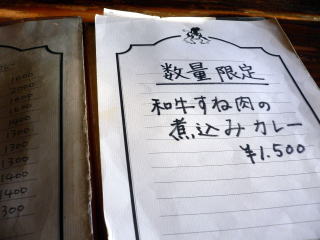 数量限定
和牛すね肉の
煮込みカレー
¥1.500
1000
1400
1300
1300
1300
1400
1400
300